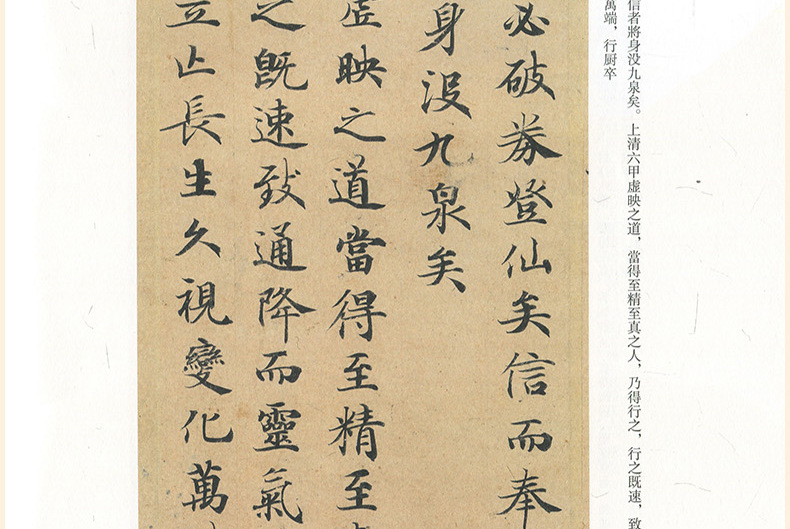 信者將身没九泉矣。上清六甲虛映之道，當得至精至真之人，乃得行之，行之既速，致
萬端，行厨卒
必破券登仙矣信而奉
身没九泉矣
虛映之道當得至精至
之既速致通降而靈氣
立止長生久視變化萬